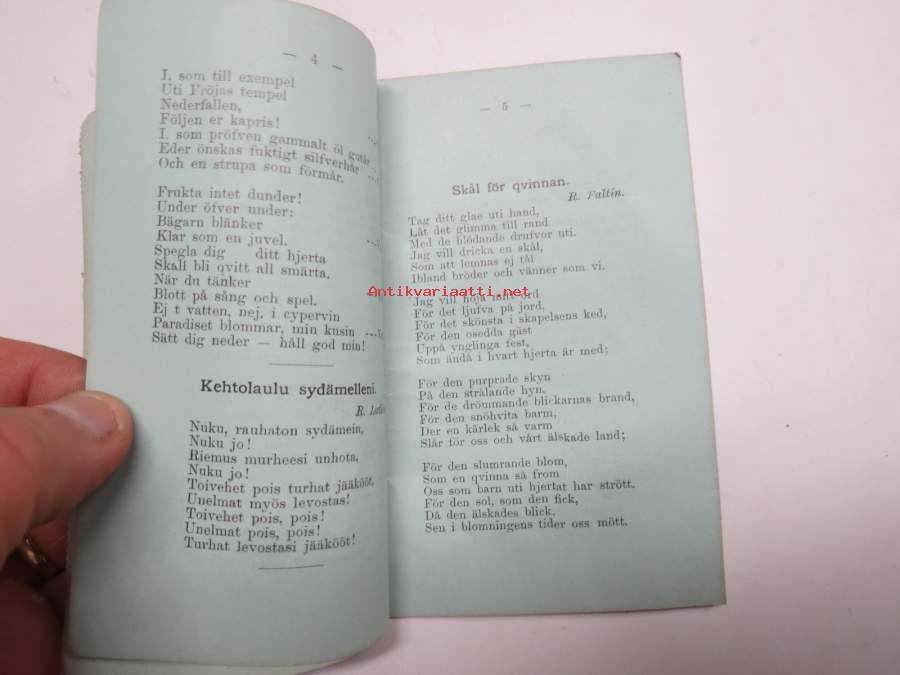 — 4 —
I, som till exempel
Uti Fröjas tempel
Nederfallen,
Följen er kapris!
I, som pröfven gammalt öl
Eder önskas fuktigt silfverhår
Och en strupa som förmår.
Frukta intet dunder!
Under öfver under:
Bägarn blänker
Klar som en juvel.
Spegla dig ditt hjerta
Skall bli qvitt all smärta.
När du tänker
Blott på sång och spel.
Ej t vatten, nej, i cypervin
Paradiset blommar, min kusin
Sätt dig neder — håll god min!
Kehtolaulu sydämelleni.
R.
Nuku, rauhaton sydämein,
Nuku jo!
Riemus murheesi unhota,
Nuku jo!
Toivehet pois turhat jääkööt,
Unelmat myös levostas!
Toivehet pois, pois!
Unelmat pois, pois!
Turhat levostasi jääkööt!
— 5 —
Skål för qvinnan.
R. Faltin.
Tag ditt glas uti hand,
Låt det glimma till rand
Med de blödande drufvor uti.
Jag vill dricka en skål,
Som att lemnas ej tål
Ibland bröder och vänner som vi.
Antikvariaatti.net
Jag vill höja mitt ord
För det ljufva på jord,
För det skönsta i skapelsens ked,
För den osedda gäst
Uppå ynglinga fest,
Som ändå i hvart hjerta är med;
För den purprade skyn
På den strålande hyn.
För de drömmande blickarnas brand,
För den snöhvita barm,
Der en kärlek så varm
Slår för oss och vårt älskade land;
För den slumrande blom,
Som en qvinna så from
Oss som barn uti hjertat har strött.
För den sol, som den fick,
Då den älskades blick.
Sen i blomningens tider oss mött.